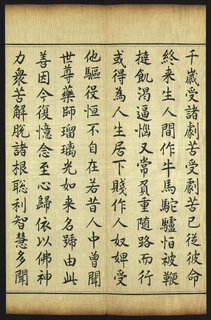 千歲受諸劇苦受劇苦已從彼命
終來生人間作牛馬駝驢恒被鞭
撻飢渴逼惱又常負重隨路而行
或得為人生居下賤作人奴婢受
他驅役恒不自在若昔人中曾聞
世尊藥師瑠璃光如來名號由此
善因今復憶念至心歸依以佛神
力衆苦解脫諸根聡利智慧多聞